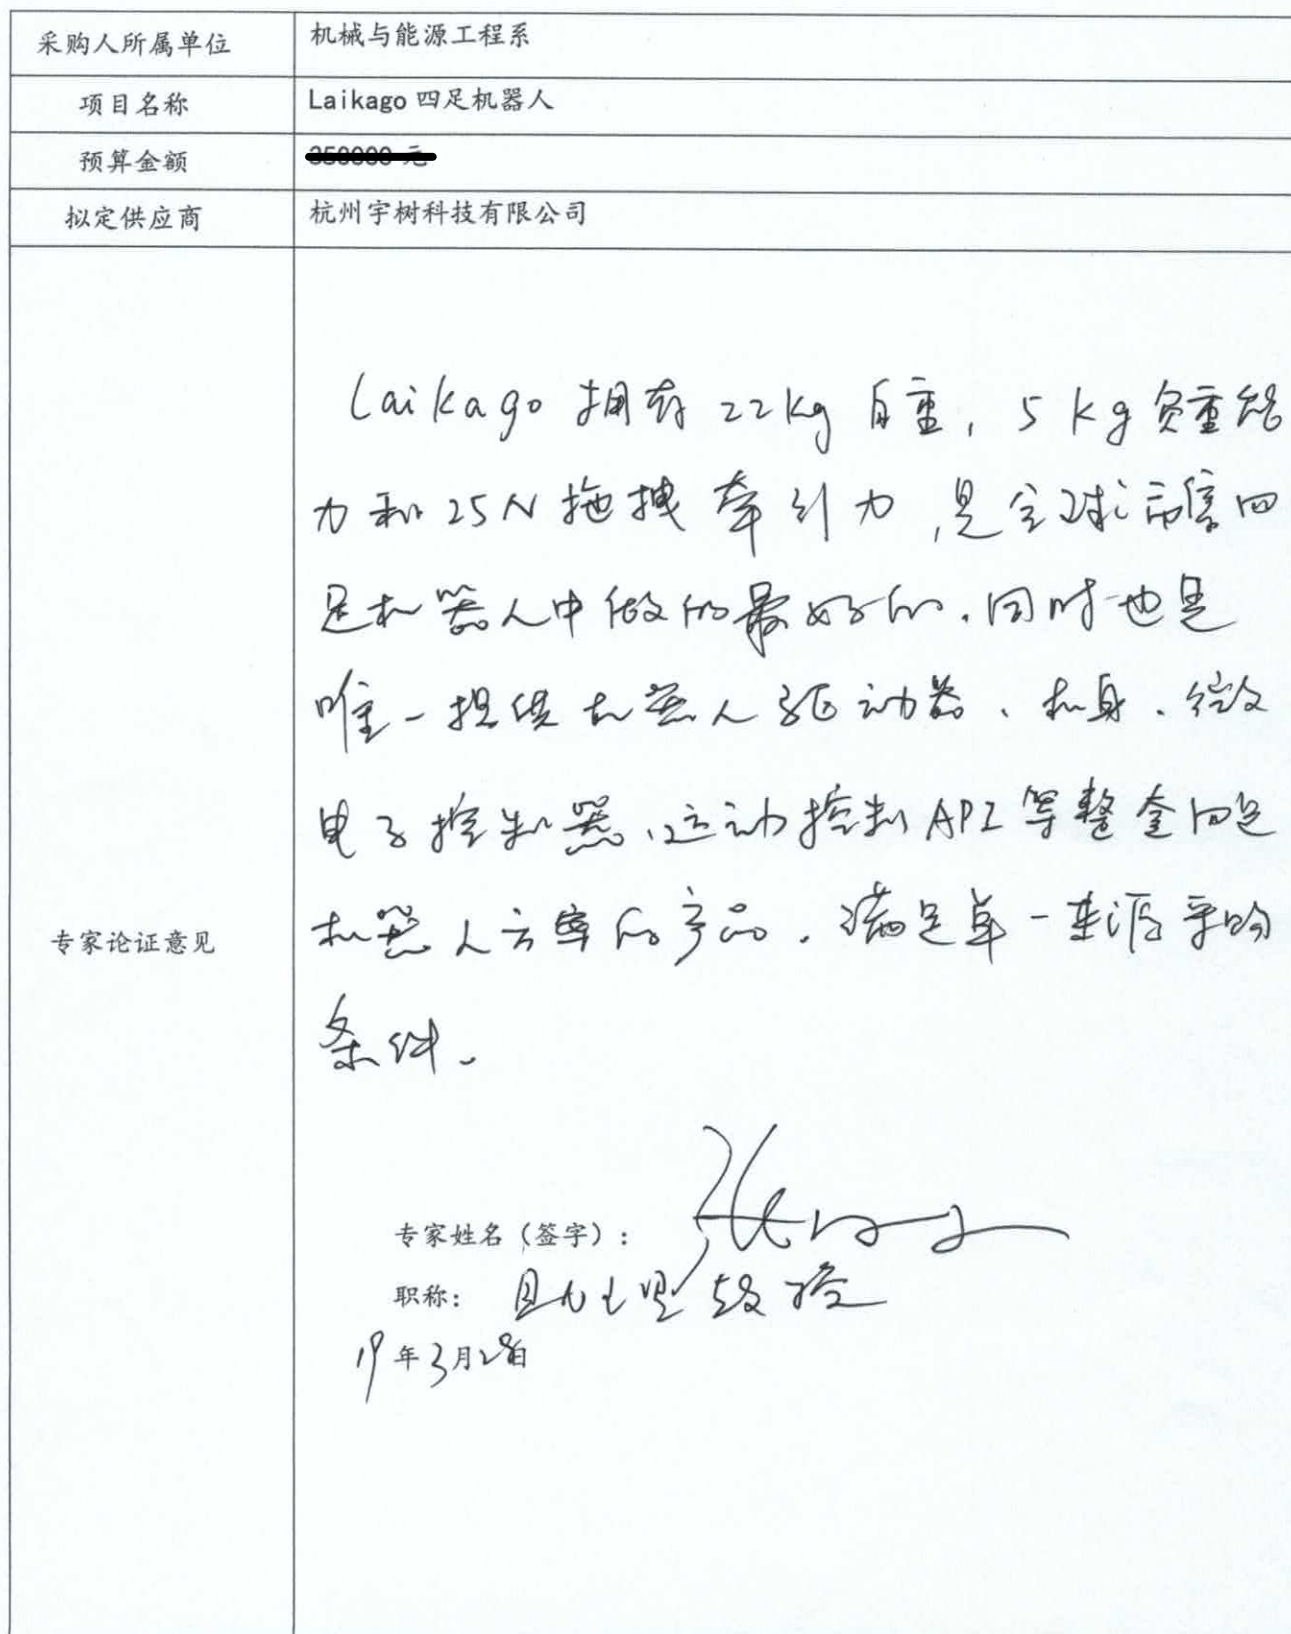 采购人所属单位 机械与能源工程系
项目名称 Laikago 四足机器人
预算金额
拟定供应商 杭州宇树科技有限公司
专家论证意见
Laikago 拥有 22kg 自重, 5kg 负重能
力和 25N 拖拽牵引力,是全球在售四
足机器人中做的最好的.同时也是
唯一提供机器人驱动器、机身、微
电子控制器、运动控制API等整套四足
机器人方案的产品.满足单一来源采购
条件。
专家姓名（签字）:
职称: 助理教授
19年3月28日